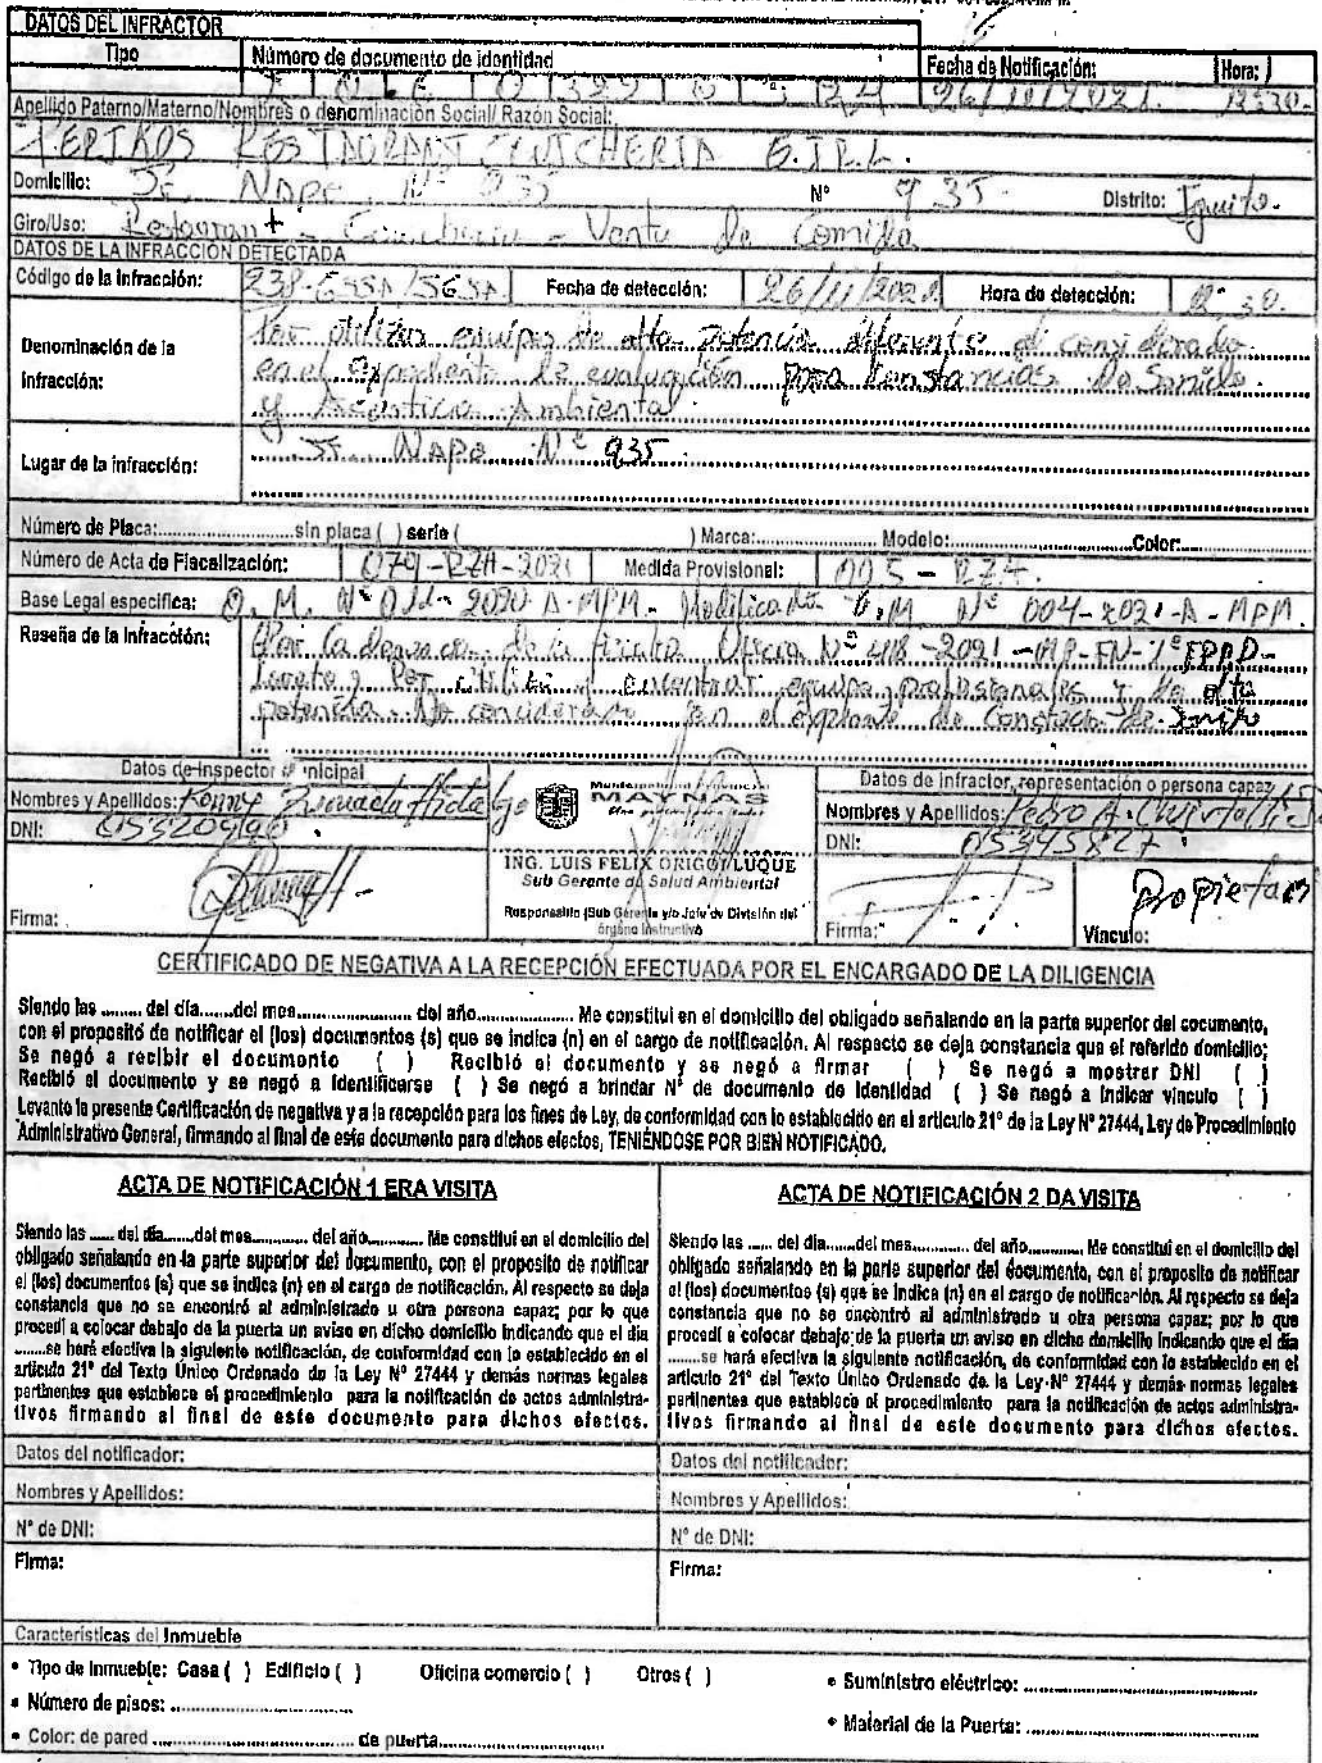 DATOS DEL INFRACTOR
Tipo Número de documento de identidad Fecha de Notificación: Hora:
26/11/2021. 12:30.
Apellido Paterno/Materno/Nombres o denominación Social/ Razón Social:
RESTAURANT CEVICHERIA E.I.R.L.
Domicilio: Jr. Napo Nº 935 Nº 935. Distrito: Iquito.
Giro/Uso: Restaurant - Cevicheria - Venta de Comida
DATOS DE LA INFRACCIÓN DETECTADA
Código de la Infracción: Fecha de detección: 26/11/2021 Hora de detección: 12:30.
Denominación de la
Infracción:
Por utilizar equipos de alta potencia diferente al considerado
en el expediente de evaluación para Constancias de Sonido
y Acústica Ambiental
Lugar de la infracción: Jr. Napo Nº 935.
Número de Placa: sin placa ( ) serie ( ) Marca: Modelo: Color:
Número de Acta de Fiscalización: 079-RZH-2021 Medida Provisional: 005-RZH.
Base Legal especifica: O.M. Nº 011-2020-A-MPM.- Modificado O.M Nº 004-2021-A-MPM.
Reseña de la Infracción:
Por la de la Oficio Nº 418-2021-MP-FN-1ºFPPD-
Loreto y Por encontrar equipos profesionales y de alta
potencia No considerado en el expediente de Constacia de Sonido
Datos de Inspector Municipal
Nombres y Apellidos: Ronny Hidalgo
DNI: 053209190
Firma:
Municipalidad Provincial
MAYNAS
ING. LUIS FELIX ORIGO LUQUE
Sub Gerente de Salud Ambiental
Responsable (Sub Gerente y/o Jefe de División del
órgano Instructivo
Datos de infractor, representación o persona capaz
Nombres y Apellidos: Pedro A.
DNI: 05345827
Firma:
Propietario
Vinculo:
CERTIFICADO DE NEGATIVA A LA RECEPCIÓN EFECTUADA POR EL ENCARGADO DE LA DILIGENCIA
Siendo las ........ del día.......del mes.................... del año................. Me constitui en el domicilio del obligado señalando en la parte superior del cocumento,
con el proposito de notificar el (los) documentos (s) que se indica (n) en el cargo de notificación. Al respecto se deja constancia que el referido domicilio;
Se negó a recibir el documento ( ) Recibló el documento y se negó a firmar ( ) Se negó a mostrar DNI ( )
Recibló el documento y se negó a identificarse ( ) Se negó a brindar Nº de documento de identidad ( ) Se negó a indicar vinculo ( )
Levanto la presente Certificación de negativa y a la recepción para los fines de Ley, de conformidad con lo establecido en el articulo 21º de la Ley Nº 27444, Ley de Procedimiento
Administrativo General, firmando al final de este documento para dichos efectos, TENIÉNDOSE POR BIEN NOTIFICADO.
ACTA DE NOTIFICACIÓN 1 ERA VISITA
Siendo las ..... del día.......del mes........... del año........... Me constitui en el domicilio del
obligado señalando en la parte superior del documento, con el proposito de notificar
el (los) documentos (s) que se indica (n) en el cargo de notificación. Al respecto se deja
constancia que no se encontró al administrado u otra persona capaz; por lo que
procedí a colocar debajo de la puerta un aviso en dicho domicilio indicando que el dia
.......se hará efectiva la siguiente notificación, de conformidad con lo establecido en el
articulo 21º del Texto Único Ordenado de la Ley Nº 27444 y demás normas legales
pertinentes que establece el procedimiento para la notificación de actos administra-
tivos firmando al final de este documento para dichos efectos.
Datos del notificador:
Nombres y Apellidos:
Nº de DNI:
Firma:
ACTA DE NOTIFICACIÓN 2 DA VISITA
Siendo las ..... del dia.......del mes........... del año........... Me constitui en el domicilio del
obligado señalando en la parte superior del documento, con el proposito de notificar
el (los) documentos (s) que se indica (n) en el cargo de notificación. Al respecto se deja
constancia que no se encontró al administrado u otra persona capaz; por lo que
procedí a colocar debajo de la puerta un aviso en dicho domicilio indicando que el dia
.......se hará efectiva la siguiente notificación, de conformidad con lo establecido en el
articulo 21º del Texto Único Ordenado de la Ley Nº 27444 y demás normas legales
pertinentes que establece el procedimiento para la notificación de actos administra-
tivos firmando al final de este documento para dichos efectos.
Datos del notificador:
Nombres y Apellidos:
Nº de DNI:
Firma:
Características del Inmueble
• Tipo de Inmueble: Casa ( ) Edificio ( ) Oficina comercio ( ) Otros ( )
• Número de pisos:
• Color: de pared de puerta
• Suministro eléctrico:
• Material de la Puerta: